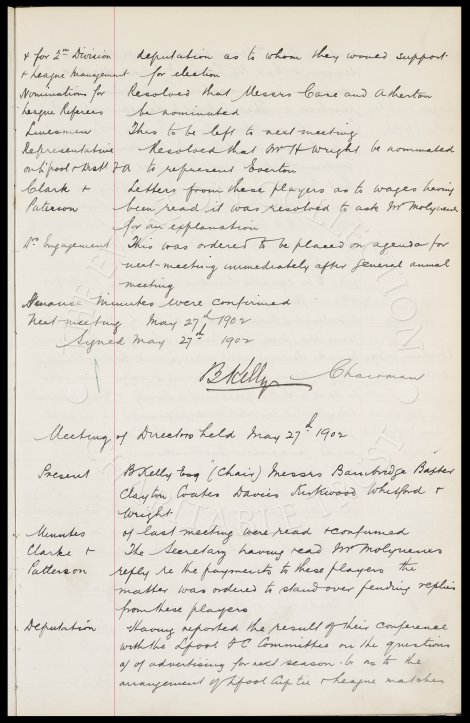 + for 2nd Division deputation as to whom they would support
+ League Management for election
Nominations for Resolved that Messrs Case and Atherton
League Referees be nominated
Linesmen This to be left to next meeting
Representative Resolved that Mr H Wright be nominated
on L'pool + Dist FA to represent Everton
Clark + Letters from these players as to wages having
Paterson been read it was resolved to ask Mr Molyneux
for an explanation
Dr Engagement This was ordered to be placed on agenda for
next meeting immediately after general annual
meeting
Finance Minutes were confirmed
Next meeting May 27th 1902
Signed May 27th 1902
B Kelly Chairman
Meeting of Directors held May 27th 1902
Present B Kelly Esq (Chair) Messrs Bainbridge Baxter
Clayton Coates Davies Kirkwood Whitford +
Wright
Minutes of last meeting were read + confirmed
Clarke + The Secretary having read Mr Molyneuxs
Patterson reply re the payments to these players the
matter was ordered to stand over pending replies
from these players
Deputation Having reported the result of their conference
with the Lpool F C Committee on the questions
of of advertising for next season & as to the
arrangement of Lpool Cup tie + League matches